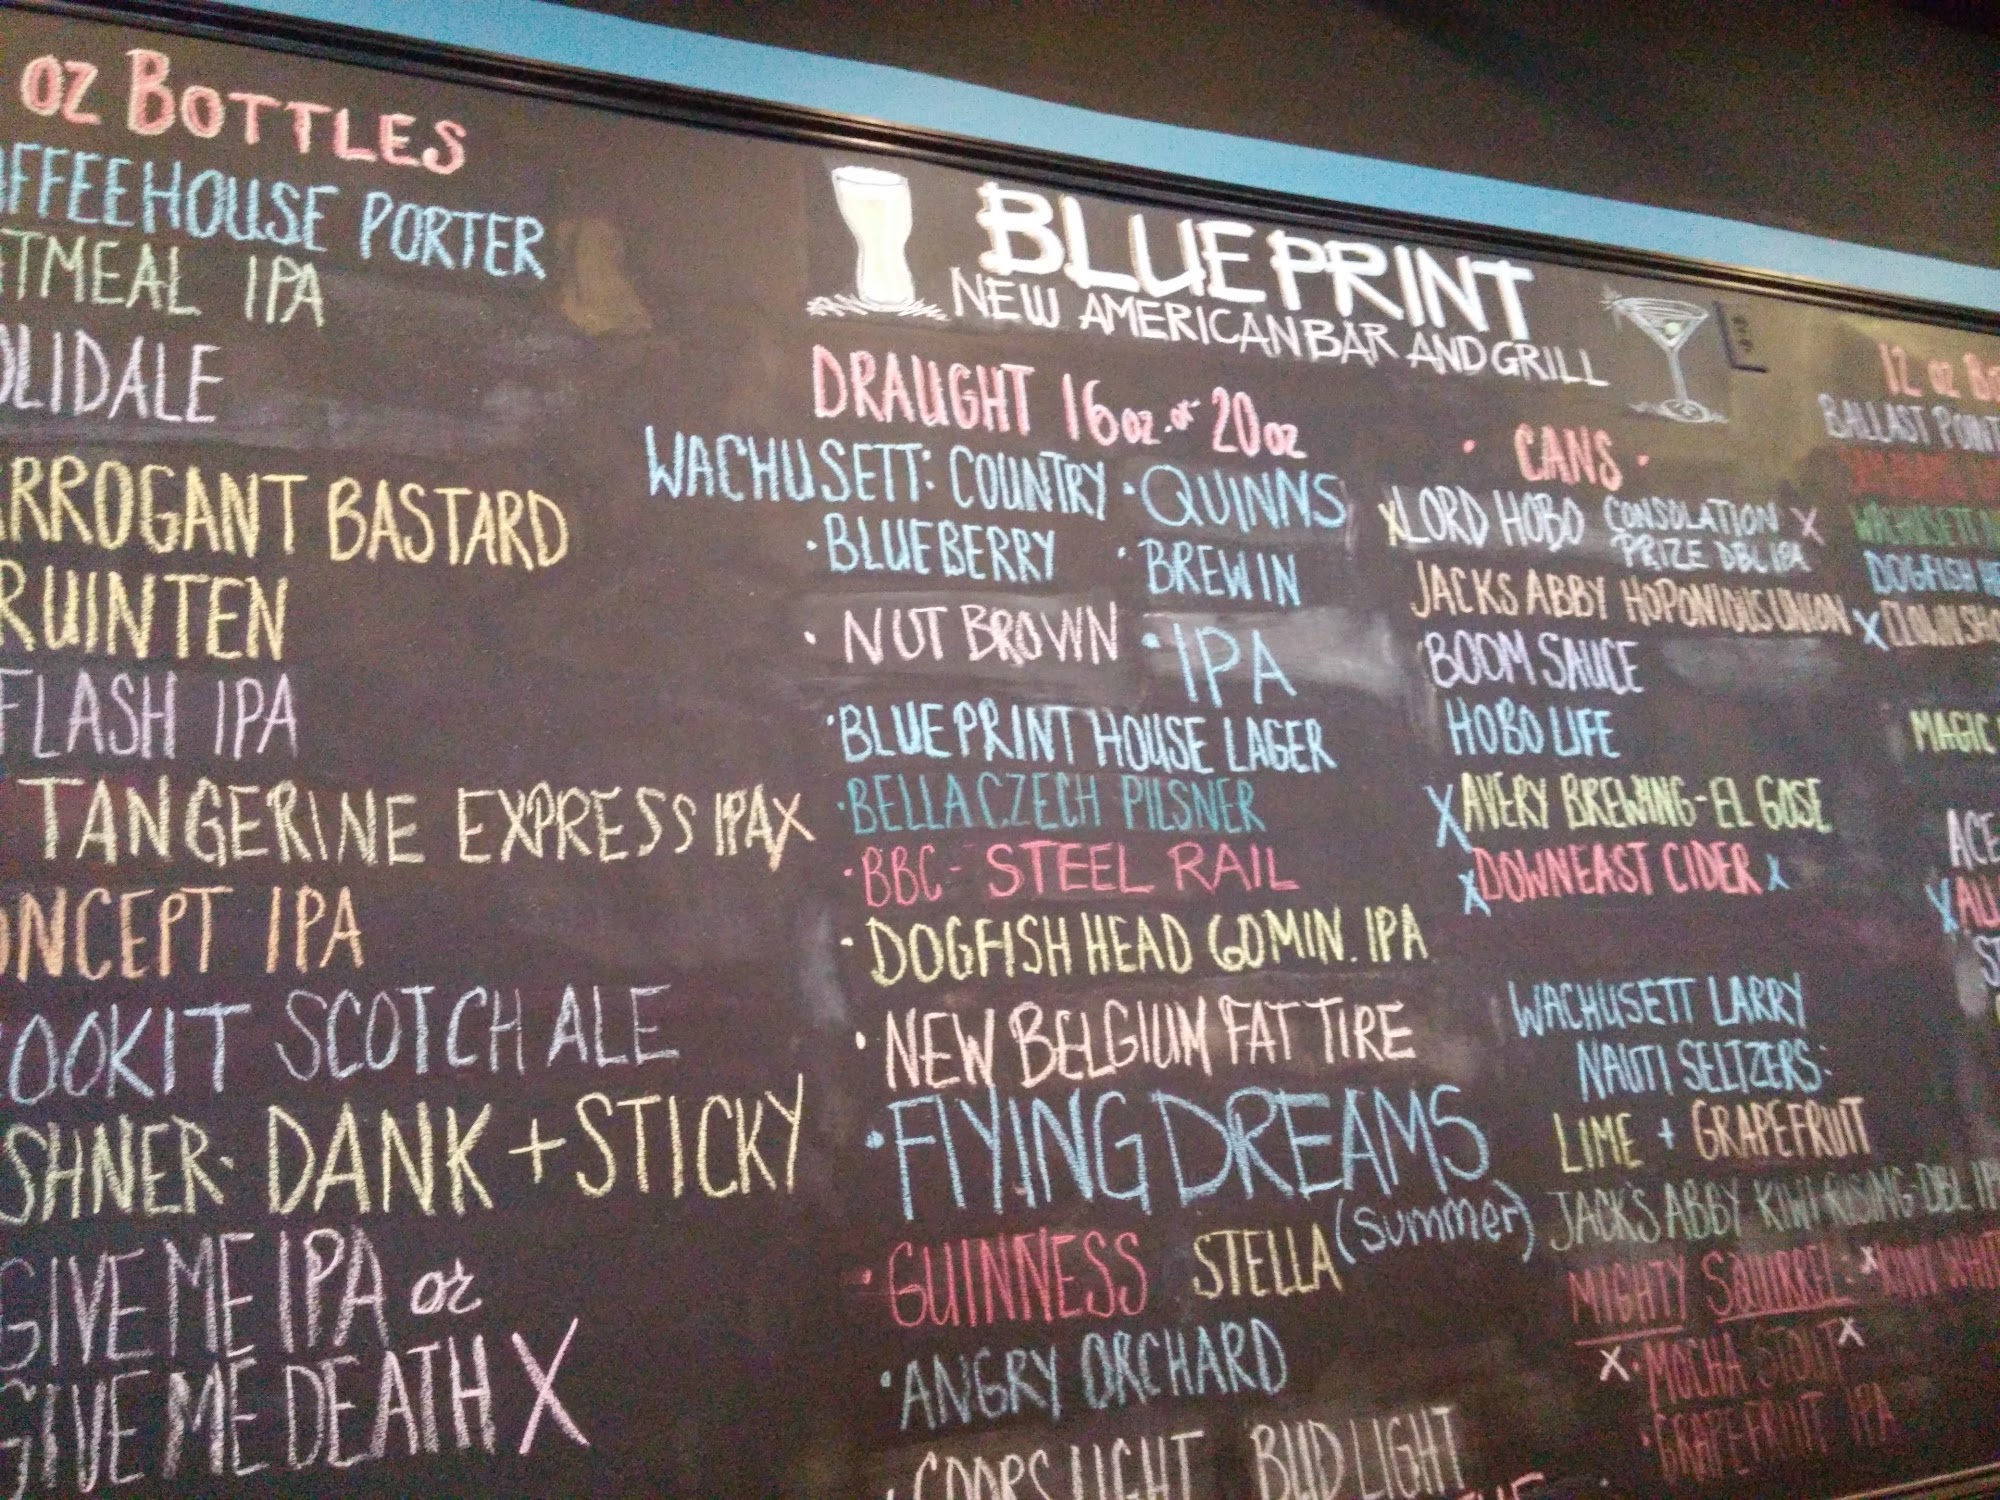 oz BOTTLES
OFFEEHOUSE PORTER
TMEAL IPA
OLIDALE
RROGANT BASTARD
RUINTEN
FLASH IPA
TANGERINE EXPRESS IPA X
ONCEPT IPA
OOKIT SCOTCH ALE
SHNER· DANK + STICKY
GIVE ME IPA or
GIVE ME DEATH X
BLUEPRINT
NEW AMERICAN BAR AND GRILL
DRAUGHT 16 oz. or 20 oz
WACHUSETT: COUNTRY · QUINNS
· BLUEBERRY · BREWIN
· NUT BROWN · IPA
· BLUEPRINT HOUSE LAGER
· BELLA CZECH PILSNER
· BBC - STEEL RAIL
· DOGFISH HEAD 60 MIN. IPA
· NEW BELGIUM FAT TIRE
· FLYING DREAMS
(summer)
· GUINNESS STELLA
· ANGRY ORCHARD
· COORS LIGHT BUD LIGHT
· CANS ·
X LORD HOBO CONSOLATION X
PRIZE DBL IPA
JACKS ABBY HOPONIOUS UNION
BOOM SAUCE
HOBO LIFE
X AVERY BREWING - EL GOSE
X DOWNEAST CIDER X
WACHUSETT LARRY
NAUTI SELTZERS:
LIME + GRAPEFRUIT
JACK'S ABBY KIWI RISING - DBL IP
MIGHTY SQUIRREL: X KIWI WHIT
X · MOCHA STOUT X
· GRAPEFRUIT IPA
12 oz Bo
BALLAST POINT
WACHUSETT
DOGFISH
X CLOWN SHO
MAGIC
ACE
X AU
ST